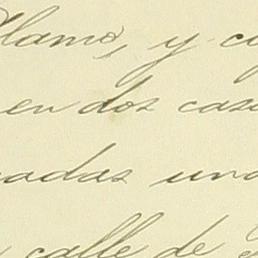 llamo, y co
en dos cas
adas un
calle de